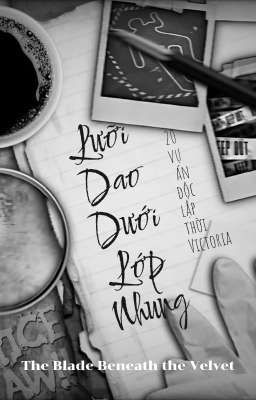 Lưỡi
Dao
Dưới
Lớp
Nhung
20
vụ
án
độc
lập
thời
Victoria
KEEP OUT
The Blade Beneath the Velvet